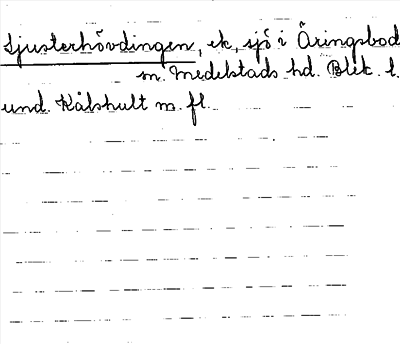 Ljusterhövdingen, ek, sjö i Äringsbod
m. Medelstads hd. Blek. l.
und. Kålshult m. fl.